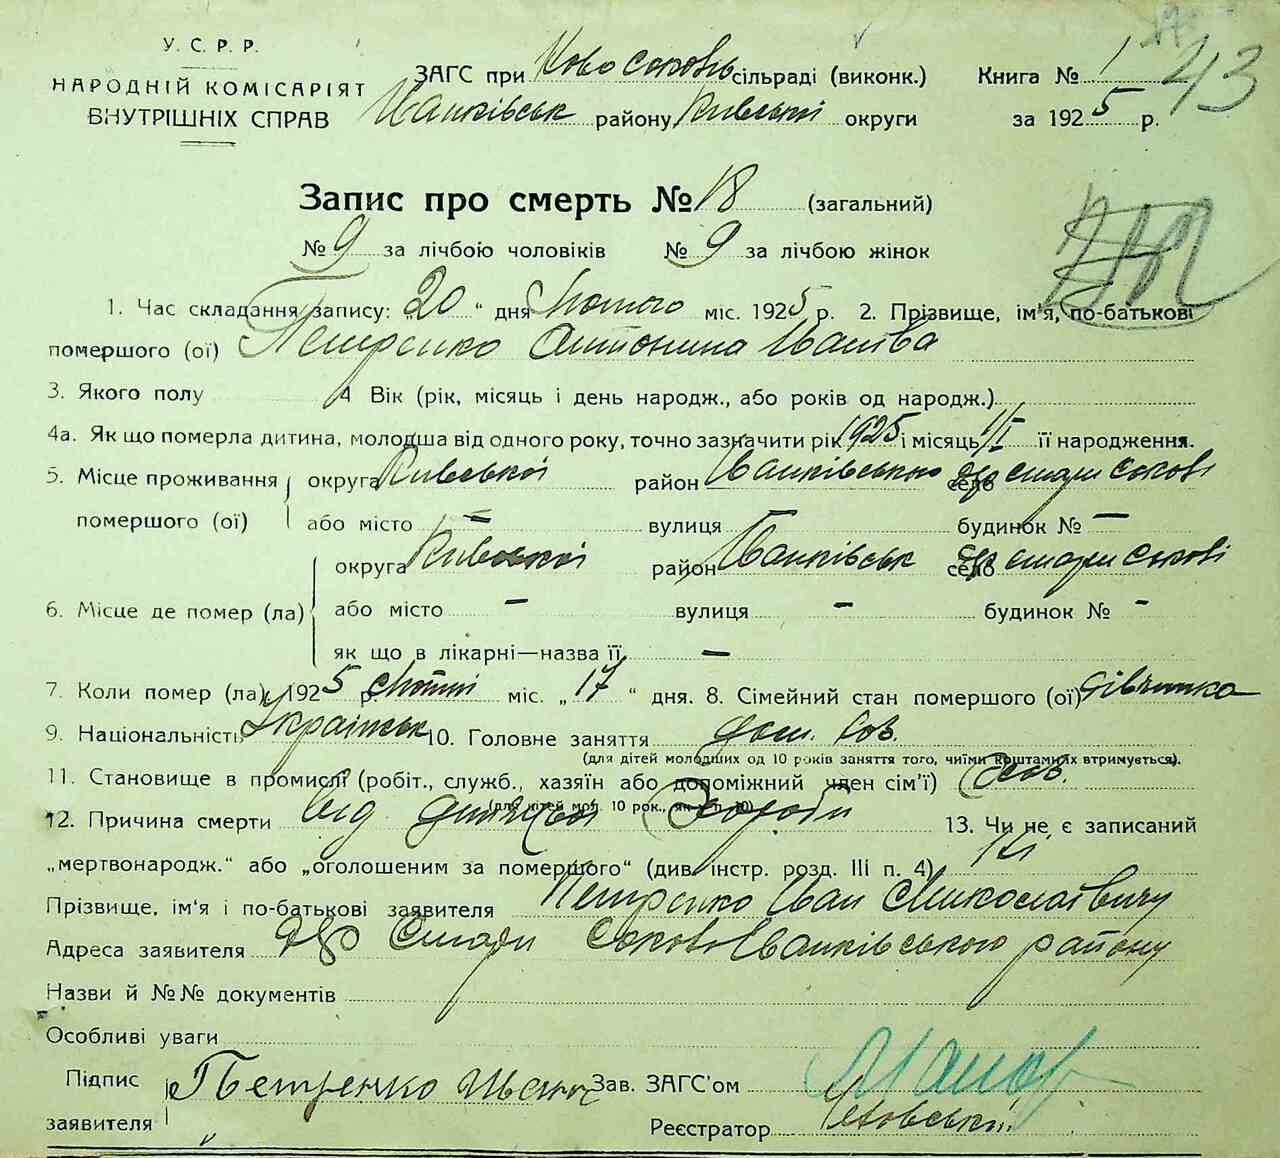 У. С. Р. Р.
НАРОДНІЙ КОМІСАРІЯТ
ВНУТРІШНІХ СПРАВ
ЗАГС при Ново Соковь сільраді (виконк.)
Іванківськ району Київської округи
Книга № 1 43
за 1925 р.
Запис про смерть № 18 (загальний)
№ 9 за лічбою чоловіків № 9 за лічбою жінок
1. Час складання запису: „20“ дня Лютого міс. 1925 р. 2. Прізвище, ім'я, по-батькові
помершого (ої) Петренко Антонина Іванівна
3. Якого полу 4 Вік (рік, місяць і день народж., або років од народж.)
4а. Як що померла дитина, молодша від одного року, точно зазначити рік 1925 і місяць 1/I її народження.
5. Місце проживання помершого (ої) округа Київської район Іванківського село Стари Сокові
або місто – вулиця будинок № –
6. Місце де помер (ла) округа Київської район Іванківськ село Стари Сокові
або місто – вулиця – будинок № -
як що в лікарні—назва її –
7. Коли помер (ла) 1925 р. Лютий міс. „17“ дня. 8. Сімейний стан помершого (ої) дівчинка
9. Національність Українськ 10. Головне заняття дом. Гов.
(для дітей молодших од 10 років заняття того, чиїми коштами їх втримується).
11. Становище в промислі (робіт., служб., хазяїн або допоміжний член сім'ї)
(для дітей мол. 10 рок., як і п. 10)
12. Причина смерти від дитячої хороби 13. Чи не є записаний
„мертвонародж.“ або „оголошеним за помершого“ (див. інстр. розд. III п. 4) Ні
Прізвище, ім'я і по-батькові заявителя Петренко Іван Миколаєвич
Адреса заявителя Стари Сокові Іванківського району
Назви й №№ документів
Особливі уваги
Підпис заявителя Петренко Иван Зав. ЗАГС'ом
Реєстратор